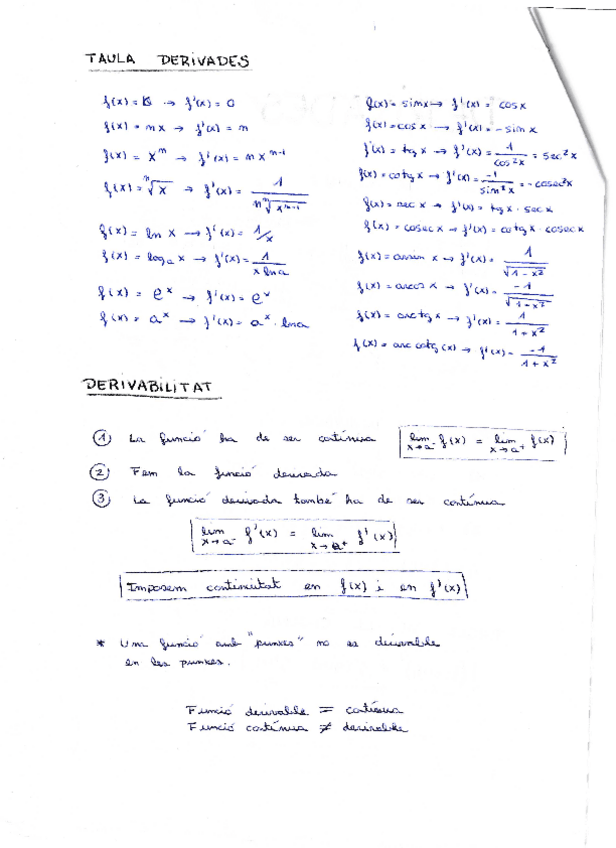 TAULA DERIVADES
f(x) = K → f'(x) = 0
f(x) = mx → f'(x) = m
f(x) = x^m → f'(x) = m x^(m-1)
f(x) = ⁿ√x → f'(x) = 1 / (n ⁿ√(x^(n-1)))
f(x) = ln x → f'(x) = 1/x
f(x) = log_a x → f'(x) = 1 / (x ln a)
f(x) = e^x → f'(x) = e^x
f(x) = a^x → f'(x) = a^x · ln a
f(x) = sin x → f'(x) = cos x
f(x) = cos x → f'(x) = - sin x
f(x) = tg x → f'(x) = 1 / cos²x = sec²x
f(x) = cotg x → f'(x) = -1 / sin²x = - cosec²x
f(x) = sec x → f'(x) = tg x · sec x
f(x) = cosec x → f'(x) = cotg x · cosec x
f(x) = arcsin x → f'(x) = 1 / √(1-x²)
f(x) = arcos x → f'(x) = -1 / √(1-x²)
f(x) = arctg x → f'(x) = 1 / (1+x²)
f(x) = arc cotg (x) → f'(x) = -1 / (1+x²)
DERIVABILITAT
① La funció ha de ser contínua lim x→a⁻ f(x) = lim x→a⁺ f(x)
② Fem la funció derivada
③ La funció derivada també ha de ser contínua
lim x→a⁻ f'(x) = lim x→a⁺ f'(x)
Imposem continuitat en f(x) i en f'(x)
* Una funció amb "punxes" no es derivable
en les punxes.
Funció derivable = contínua
Funció contínua ≠ derivable